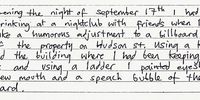 ening the night of september 17th I had
rinking at a nightclub with friends when I
ke a humorous adjustment to a billboard
f the property on Hudson st. Using a k
d the building where I had been keeping
and using a ladder I painted eyes
ew mouth and a speach bubble of the
ard.